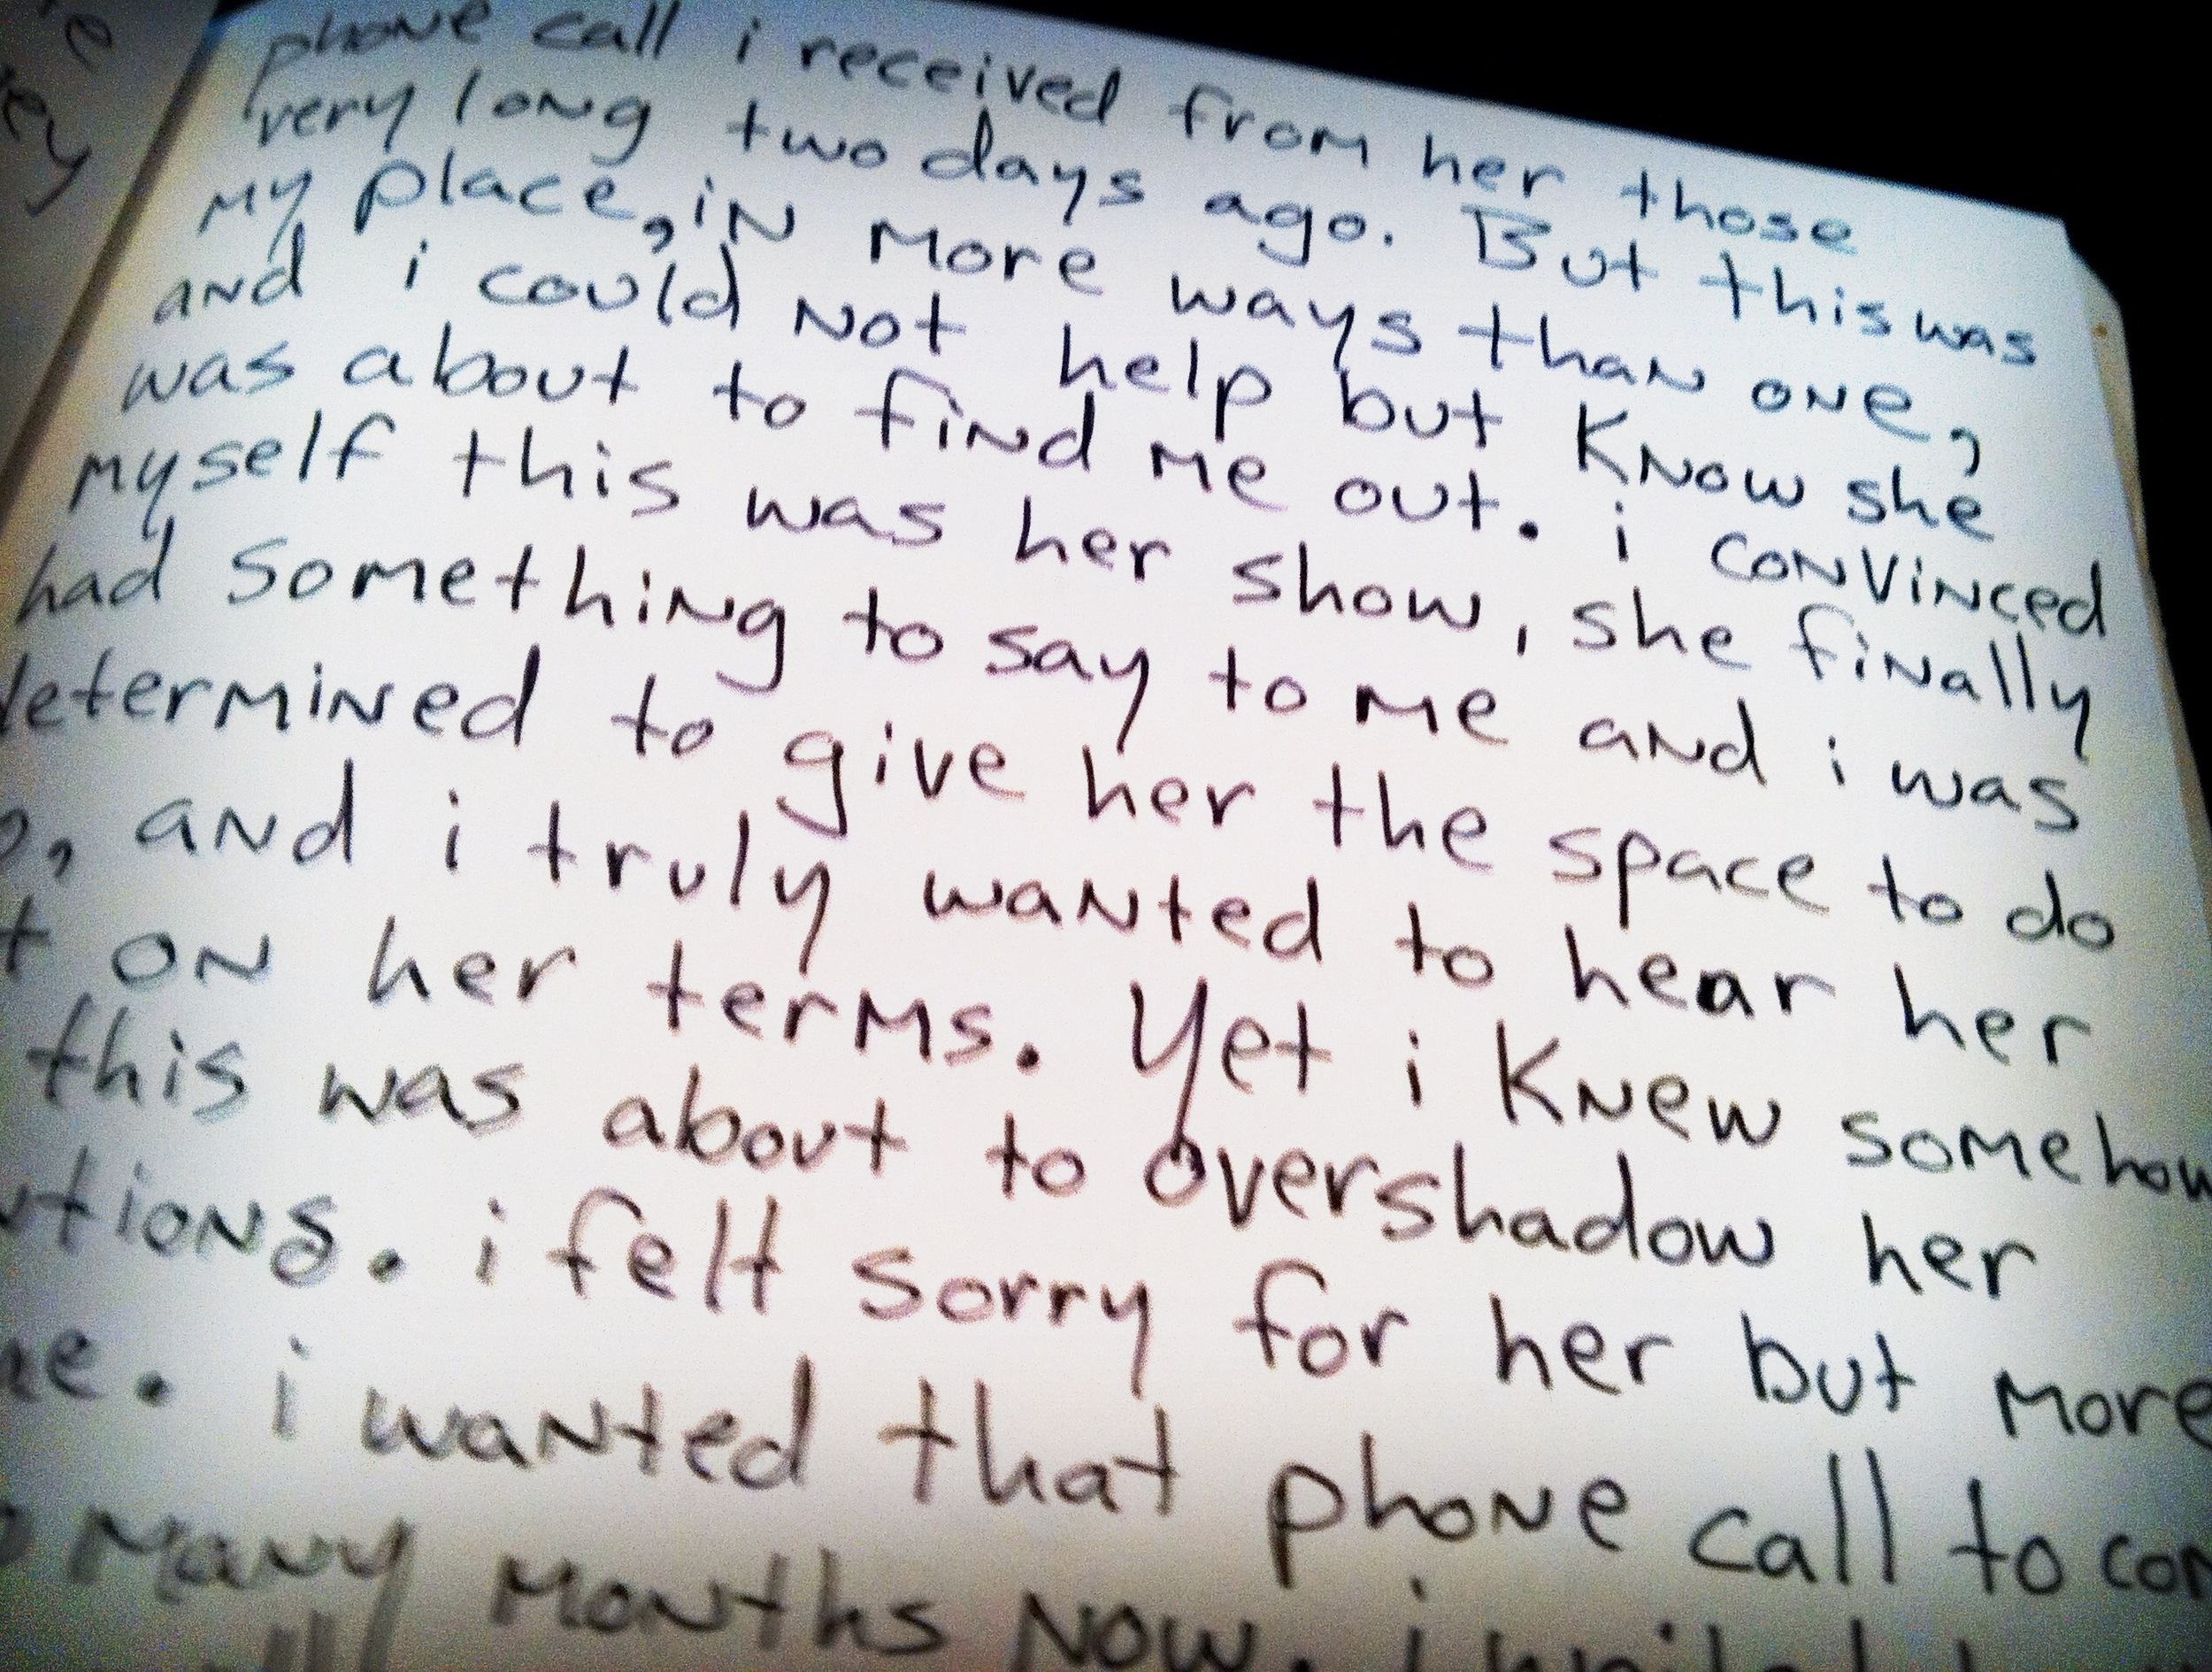 phone call i received from her those
very long two days ago. But this was
my place, in more ways than one,
and i could not help but know she
was about to find me out. i convinced
myself this was her show, she finally
had something to say to me and i was
determined to give her the space to do
, and i truly wanted to hear her
on her terms. Yet i knew somehow
this was about to overshadow her
i felt sorry for her but more
i wanted that phone call to
many months now. i